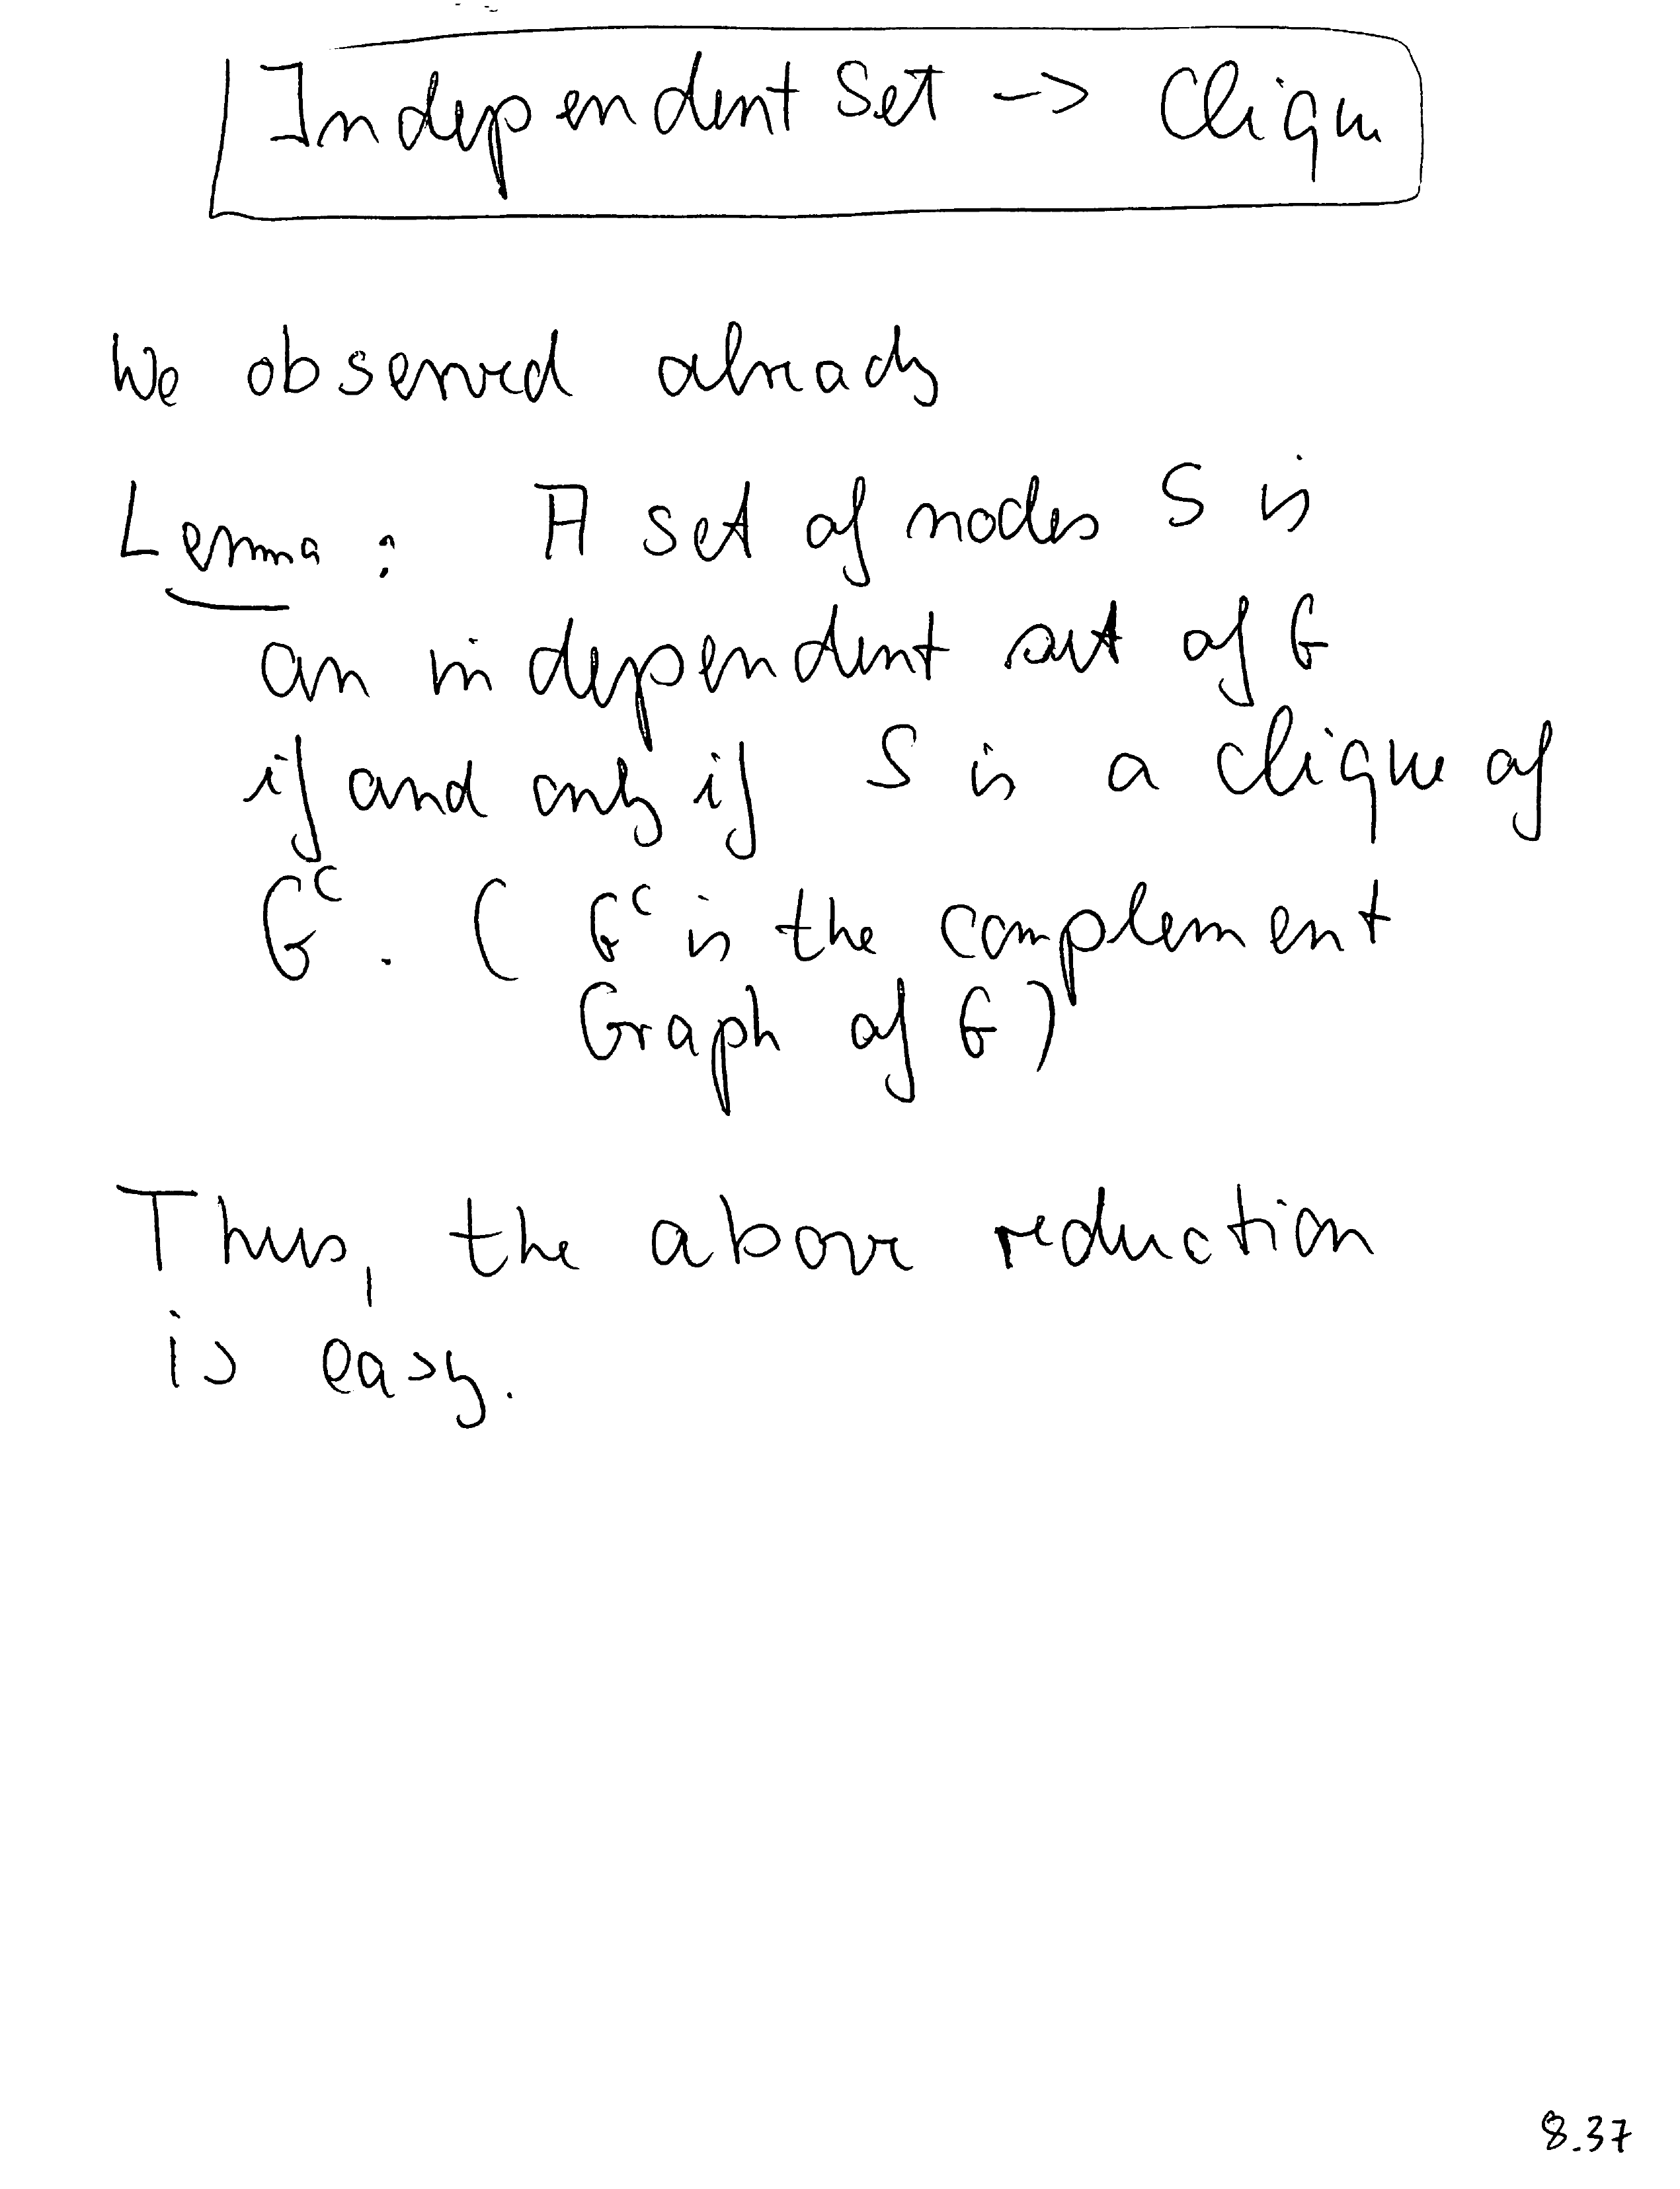 Independent Set -> Clique
We observed already
Lemma: A set of nodes S is
an independent set of G
if and only if S is a clique of
G^c. ( G^c is the complement
Graph of G)
Thus, the above reduction
is easy.
8.37